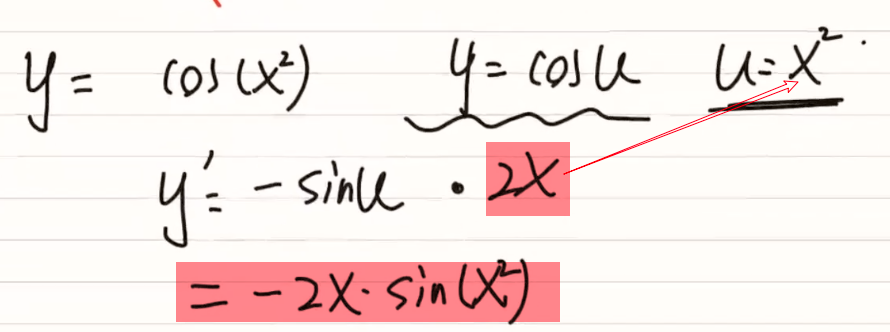 y = cos(x²) y = cosu u = x².
y' = -sinu · 2x
= -2x · sin(x²)